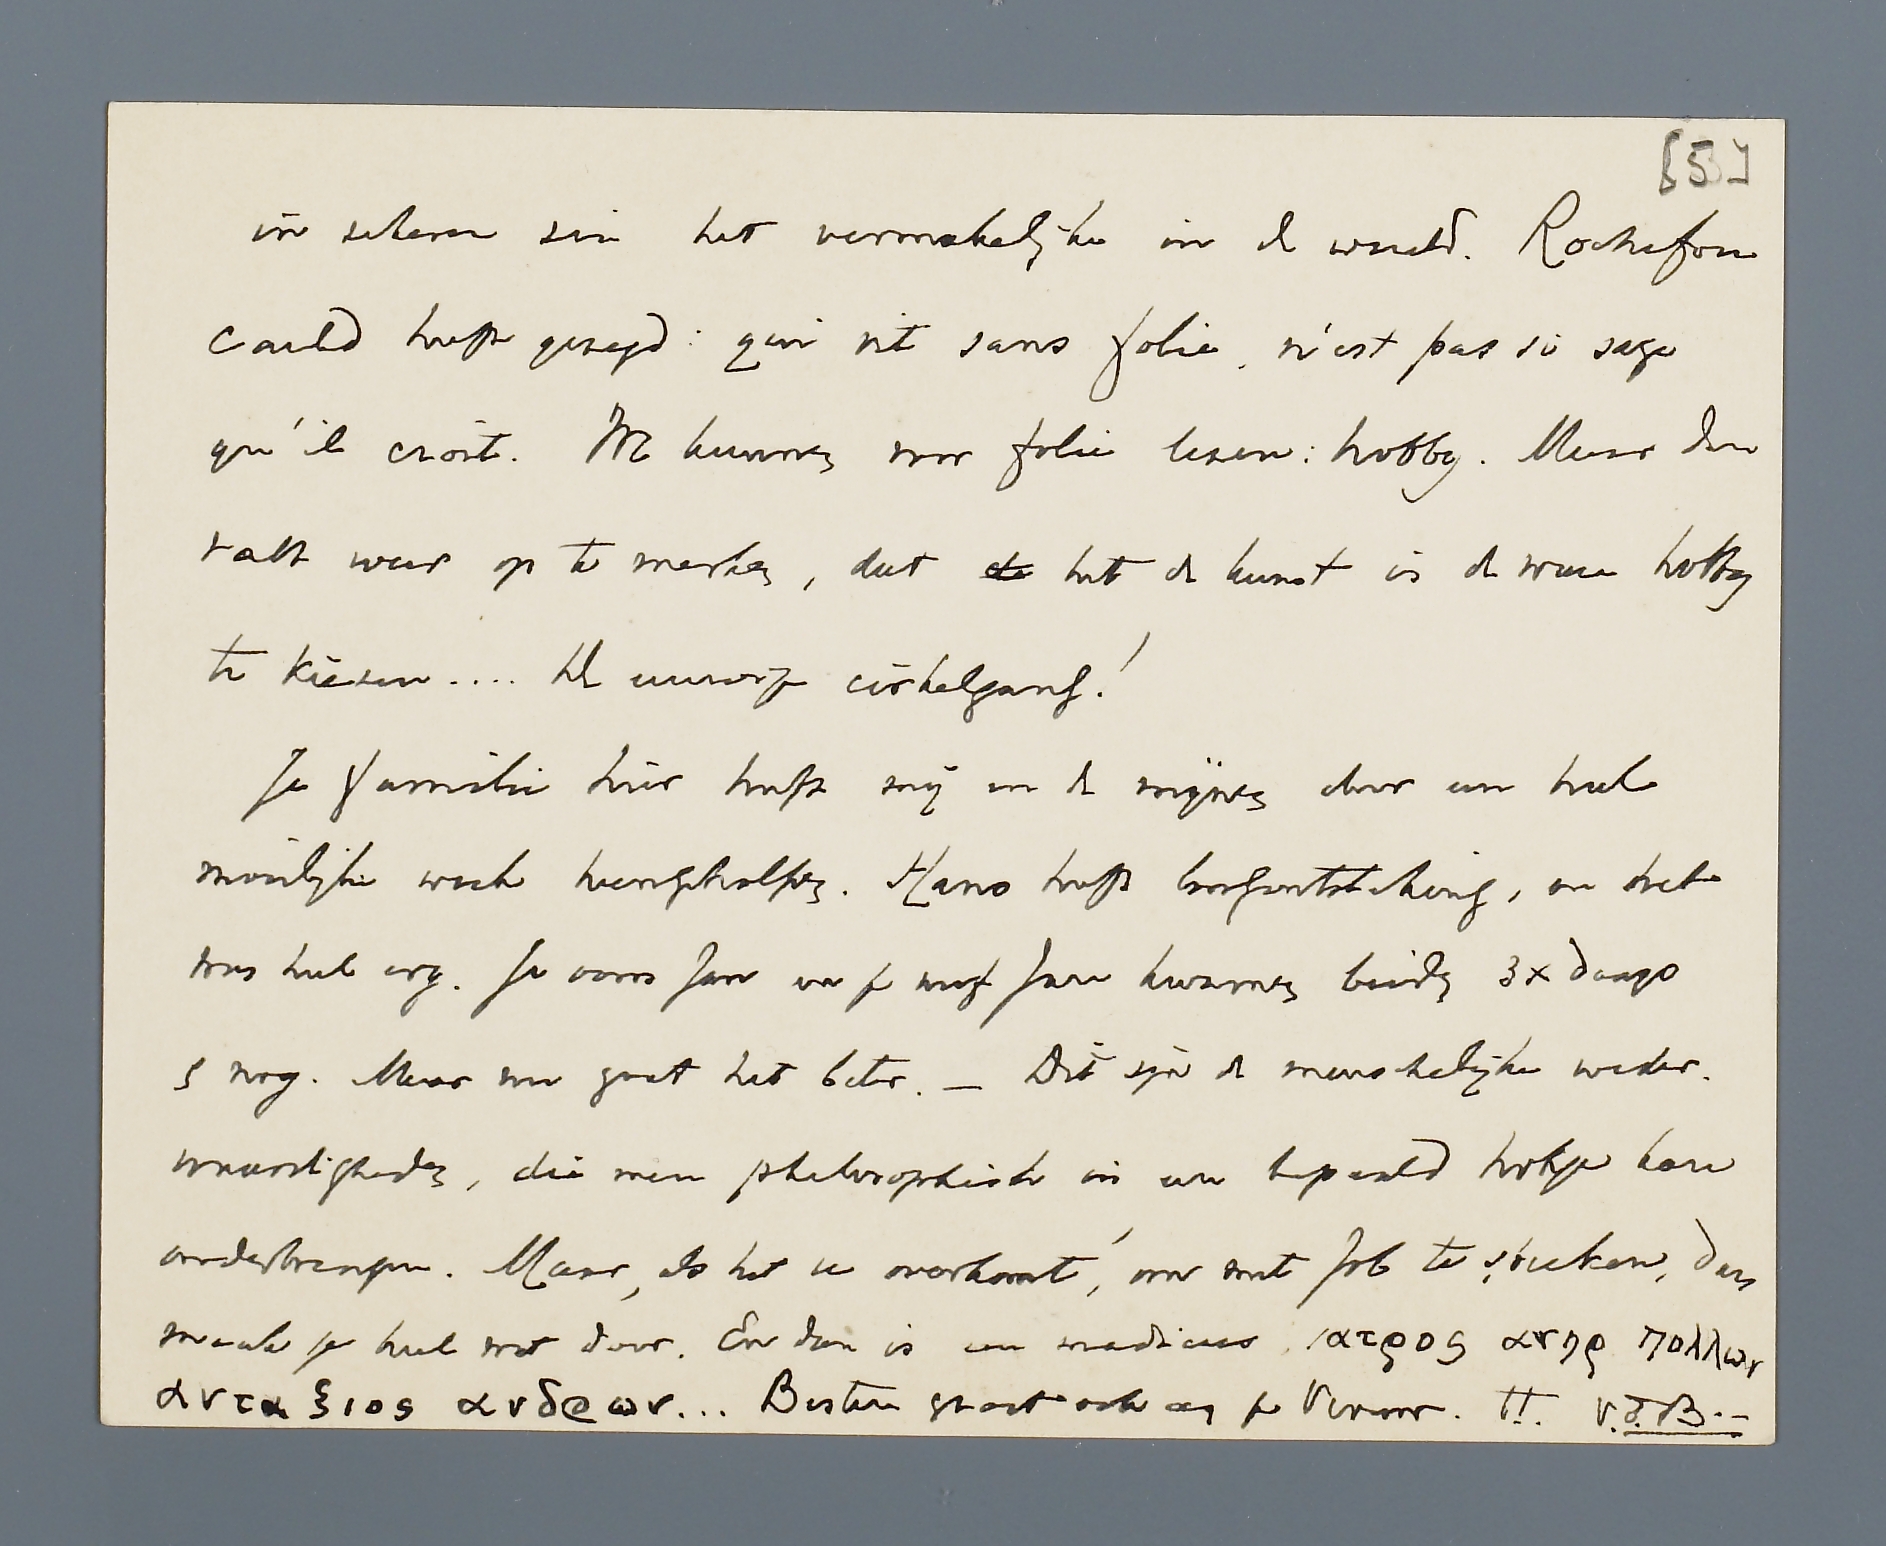 [5]
in zekeren zin het vermakelijke in de wereld. Rochefou
cauld heeft gezegd: qui vit sans folie, n'est pas si sage
qu'il croit. We kunnen voor folie lezen: hobby. Maar dan
valt weer op te merken, dat de het de kunst is de ware hobby
te kiezen.... De eeuwige cirkelgang!
Je familie hier heeft mij en de mijnen door een heel
moeilijke week heengeholpen. Hans heeft longontsteking, en het
was heel erg. Je oom Jan en je neef Jan kwamen beiden 3x daags
en nog. Maar nu gaat het beter. — Dit zijn de menschelijke weder-
waardigheden, die men philosophisch in een bepaald hokje kan
onderbrengen. Maar, als het je overkomt, om met Job te spreken, dan
maak je heel wat door. En dan is een medicus, ιατρος ανηρ πολλων
ανταξιος ανδρων... Beste groet ook aan je Vrouw. t.t. V.d.B.-